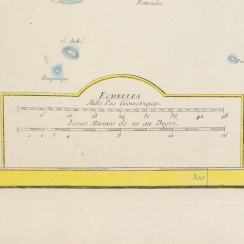 Roncador
S. André
Albuquerque
ECHELLES
Mille Pas Géometriques.
6 12 18 24 30 36 42 48
Lieues Marines de 20 au Degré.
1 2 3 4 8 12 16